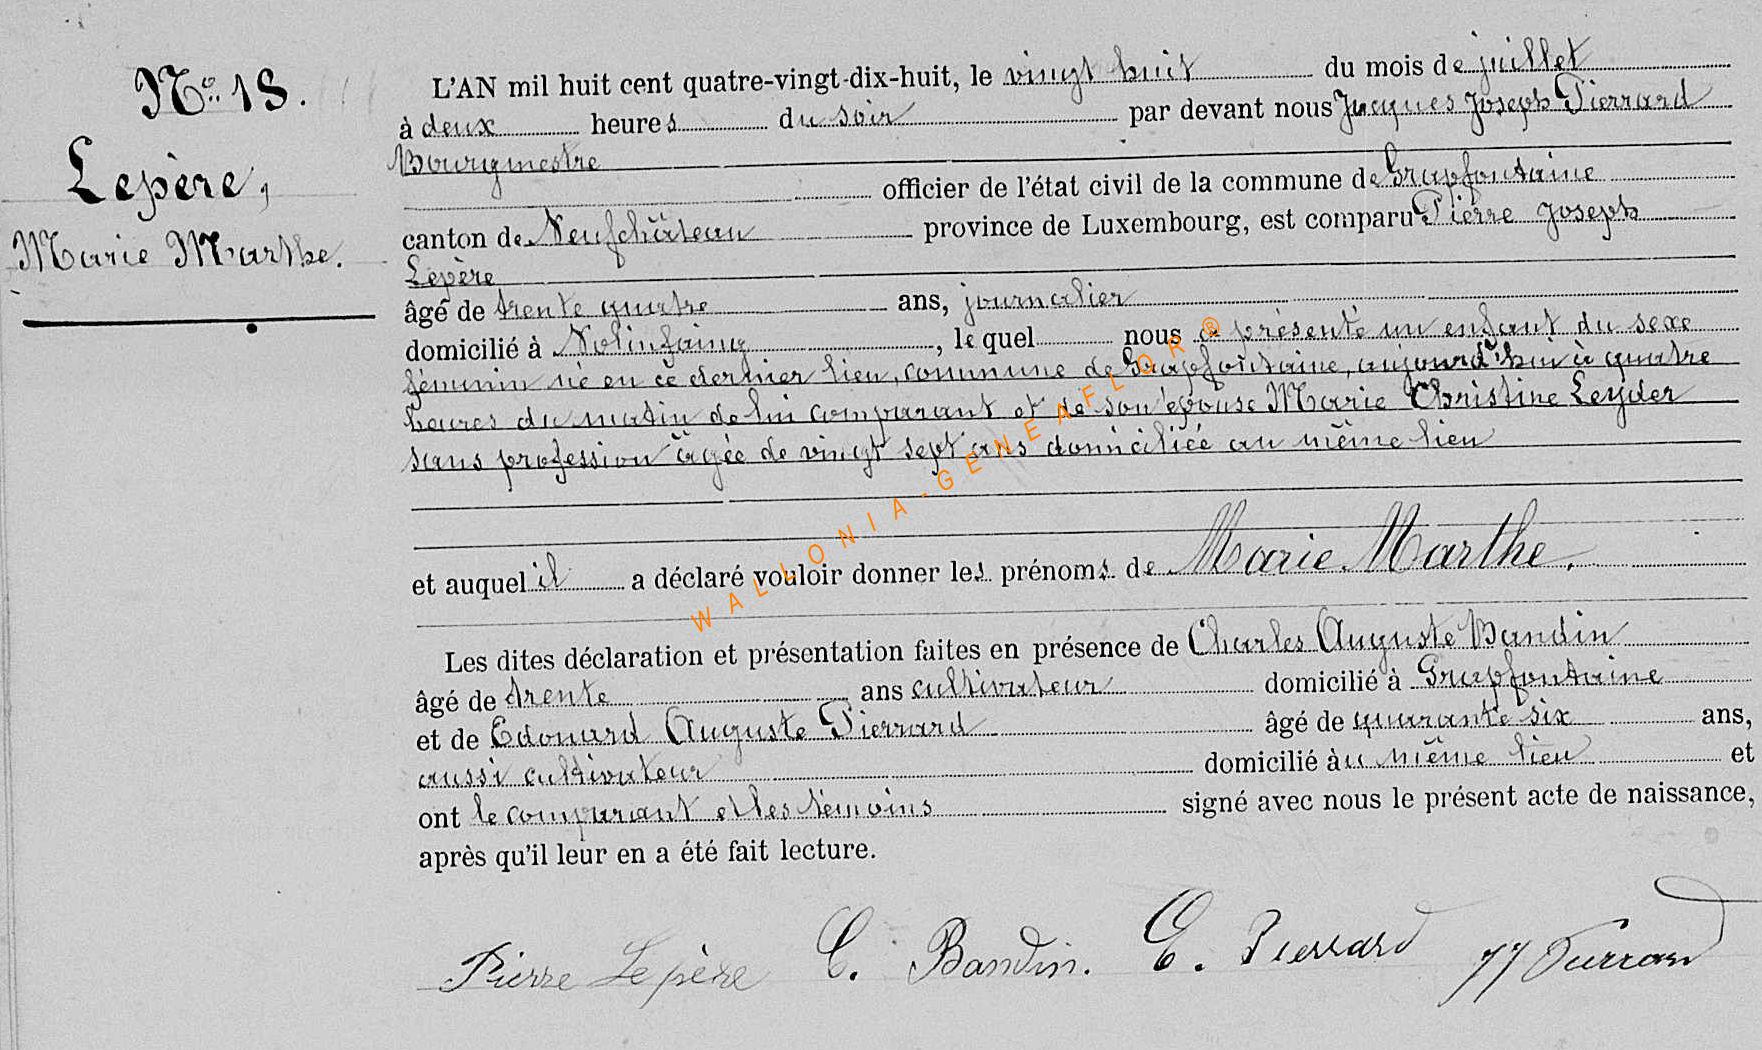 No. 18.
Lepère,
Marie Marthe.
L'AN mil huit cent quatre-vingt-dix-huit, le vingt huit du mois de juillet
à deux heures du soir par devant nous Jacques Joseph Pierrard
Bourgmestre
officier de l'état civil de la commune de Grapfontaine
canton de Neufchâteau province de Luxembourg, est comparu Pierre Joseph
Lepère
âgé de trente quatre ans, journalier
domicilié à Nolinfaing, le quel nous a présenté un enfant du sexe
féminin né en ce dernier lieu, commune de Grapfontaine, aujourd'hui à quatre
heures du matin de lui comparant et de son épouse Marie Christine Leyder
sans profession âgée de vingt sept ans domiciliée au même lieu
et auquel il a déclaré vouloir donner les prénoms de Marie Marthe.
Les dites déclaration et présentation faites en présence de Charles Auguste Bandin
âgé de trente ans cultivateur domicilié à Grapfontaine
et de Edouard Auguste Pierrard âgé de quarante six ans,
aussi cultivateur domicilié au même lieu et
ont le comparant et les témoins signé avec nous le présent acte de naissance,
après qu'il leur en a été fait lecture.
Pierre Lepère C. Bandin. E. Pierrard JJ Pierrard
WALLONIA-GENEAFLOR®